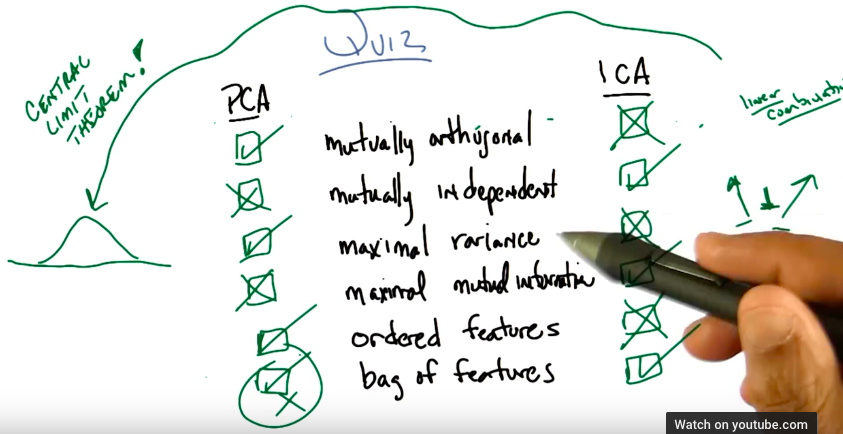 Quiz
CENTRAL
LIMIT
THEOREM!
PCA
ICA
mutually orthogonal
mutually independent
maximal variance
maximal mutual information
ordered features
bag of features
linear
combination
Watch on youtube.com